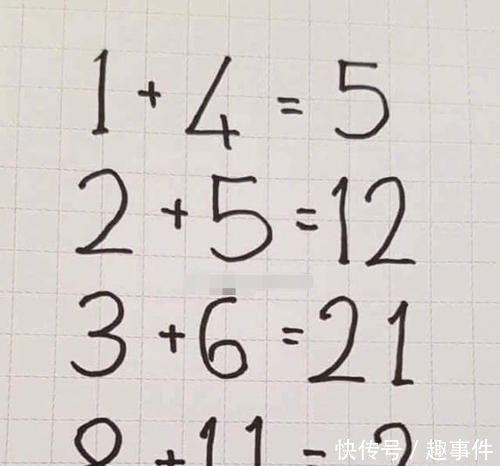 1 + 4 = 5
2 + 5 = 12
3 + 6 = 21
8 + 11 =
快传号 / 趣事件